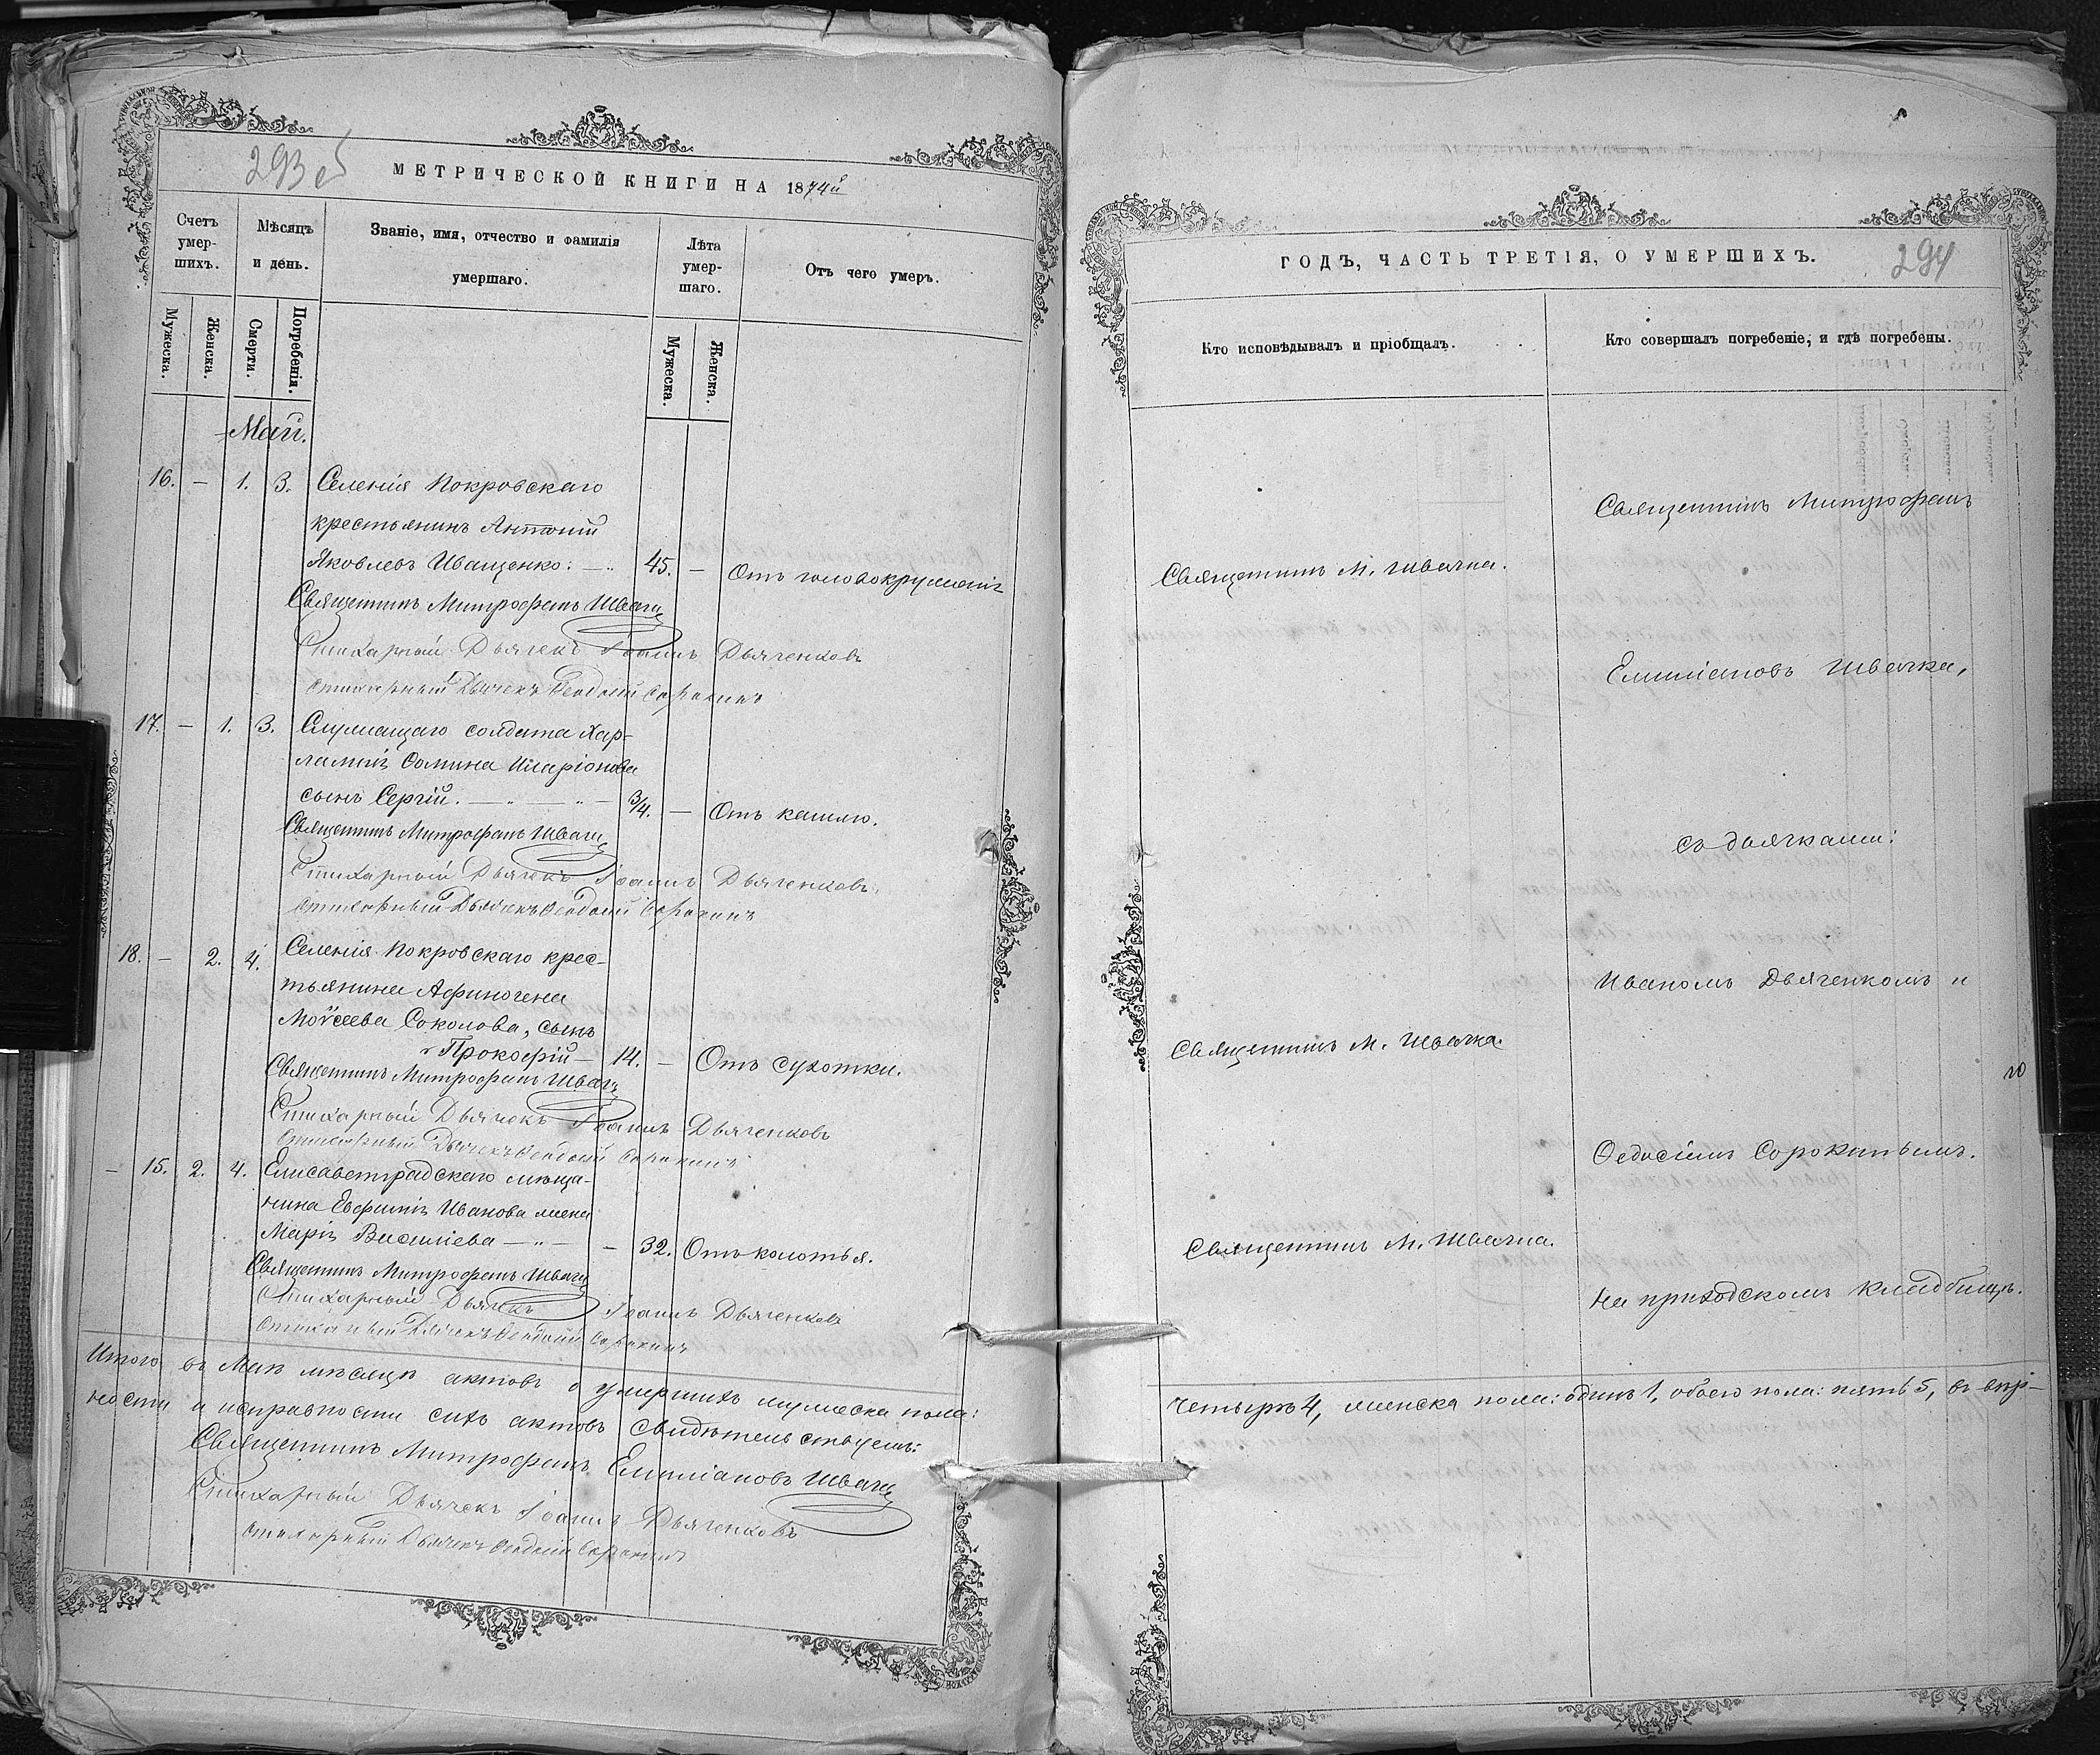 293 об
МЕТРИЧЕСКОЙ КНИГИ НА 1874й
Счетъ умер- шихъ.
Мѣсяцъ и день.
Званіе, имя, отчество и фамилія умершаго.
Лѣта умер- шаго.
Отъ чего умеръ.
Мужеска. Женска. Смерти. Погребенія. Мужеска. Женска.
Май.
16. — 1. 3. Селенія Покровскаго
крестьянинъ Антоній
Яковлевъ Иващенко: — 45. — Отъ головокруженія
Священникъ Митрофанъ Швачка
Стихарный Дьячекъ Іоаннъ Дьяченковъ
Стихарный Дьячекъ Феодосій Сорокинъ
17. — 1. 3. Служащаго солдата Хар-
лампія Ѳомина Иларіонова
сынъ Сергій. — 3/4. — Отъ кашлю.
Священникъ Митрофанъ Швачка
Стихарный Дьячекъ Іоаннъ Дьяченковъ.
Стихарный Дьячекъ Феодосій Сорокинъ
18. — 2. 4. Селенія Покровскаго крес-
тьянина Афиногена
Моѵсеева Соколова, сынъ
Прокофій — 14. — Отъ сухотки.
Священникъ Митрофанъ Швачка
Стихарный Дьячекъ Іоаннъ Дьяченковъ
Стихарный Дьячекъ Феодосій Сорокинъ
— 15. 2. 4. Елисаветградскаго мѣща-
нина Евфимія Иванова жена
Марія Василіева — — 32. Отъ колотья.
Священникъ Митрофанъ Швачка
Стихарный Дьячекъ Іоаннъ Дьяченковъ
Стихарный Дьячекъ Феодосій Сорокинъ
Итого въ Маѣ мѣсяцѣ актовъ о умершихъ мужеска пола:
ности и исправности сихъ актовъ свидѣтельствуемъ:
Священникъ Митрофанъ Емиліановъ Швачка
Стихарный Дьячекъ Іоаннъ Дьяченковъ
Стихарный Дьячекъ Феодосій Сорокинъ
ГОДЪ, ЧАСТЬ ТРЕТІЯ, О УМЕРШИХЪ.
294
Кто исповѣдывалъ и пріобщалъ.
Кто совершалъ погребеніе, и гдѣ погребены.
Священникъ Митрофанъ
Священникъ М. Швачка.
Емиліановъ Швачка,
съ дьячками:
Иваномъ Дьяченкомъ и
Священникъ М. Швачка
Ѳедосіемъ Сорокинымъ.
Священникъ М. Швачка.
на приходскомъ кладбищѣ.
четыре 4, женска пола: одинъ 1, обоего пола: пять 5, въ вѣр-